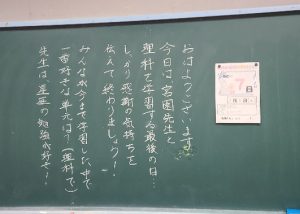 おはようございます。
今日は、宮園先生と
理科を学習する最後の日…
しっかり感謝の気持ちを
伝えて終わりましょう!
みんなが今まで学習した中で
一番好きな単元は?(理科で)
先生は、星座の勉強が好き!
7
日